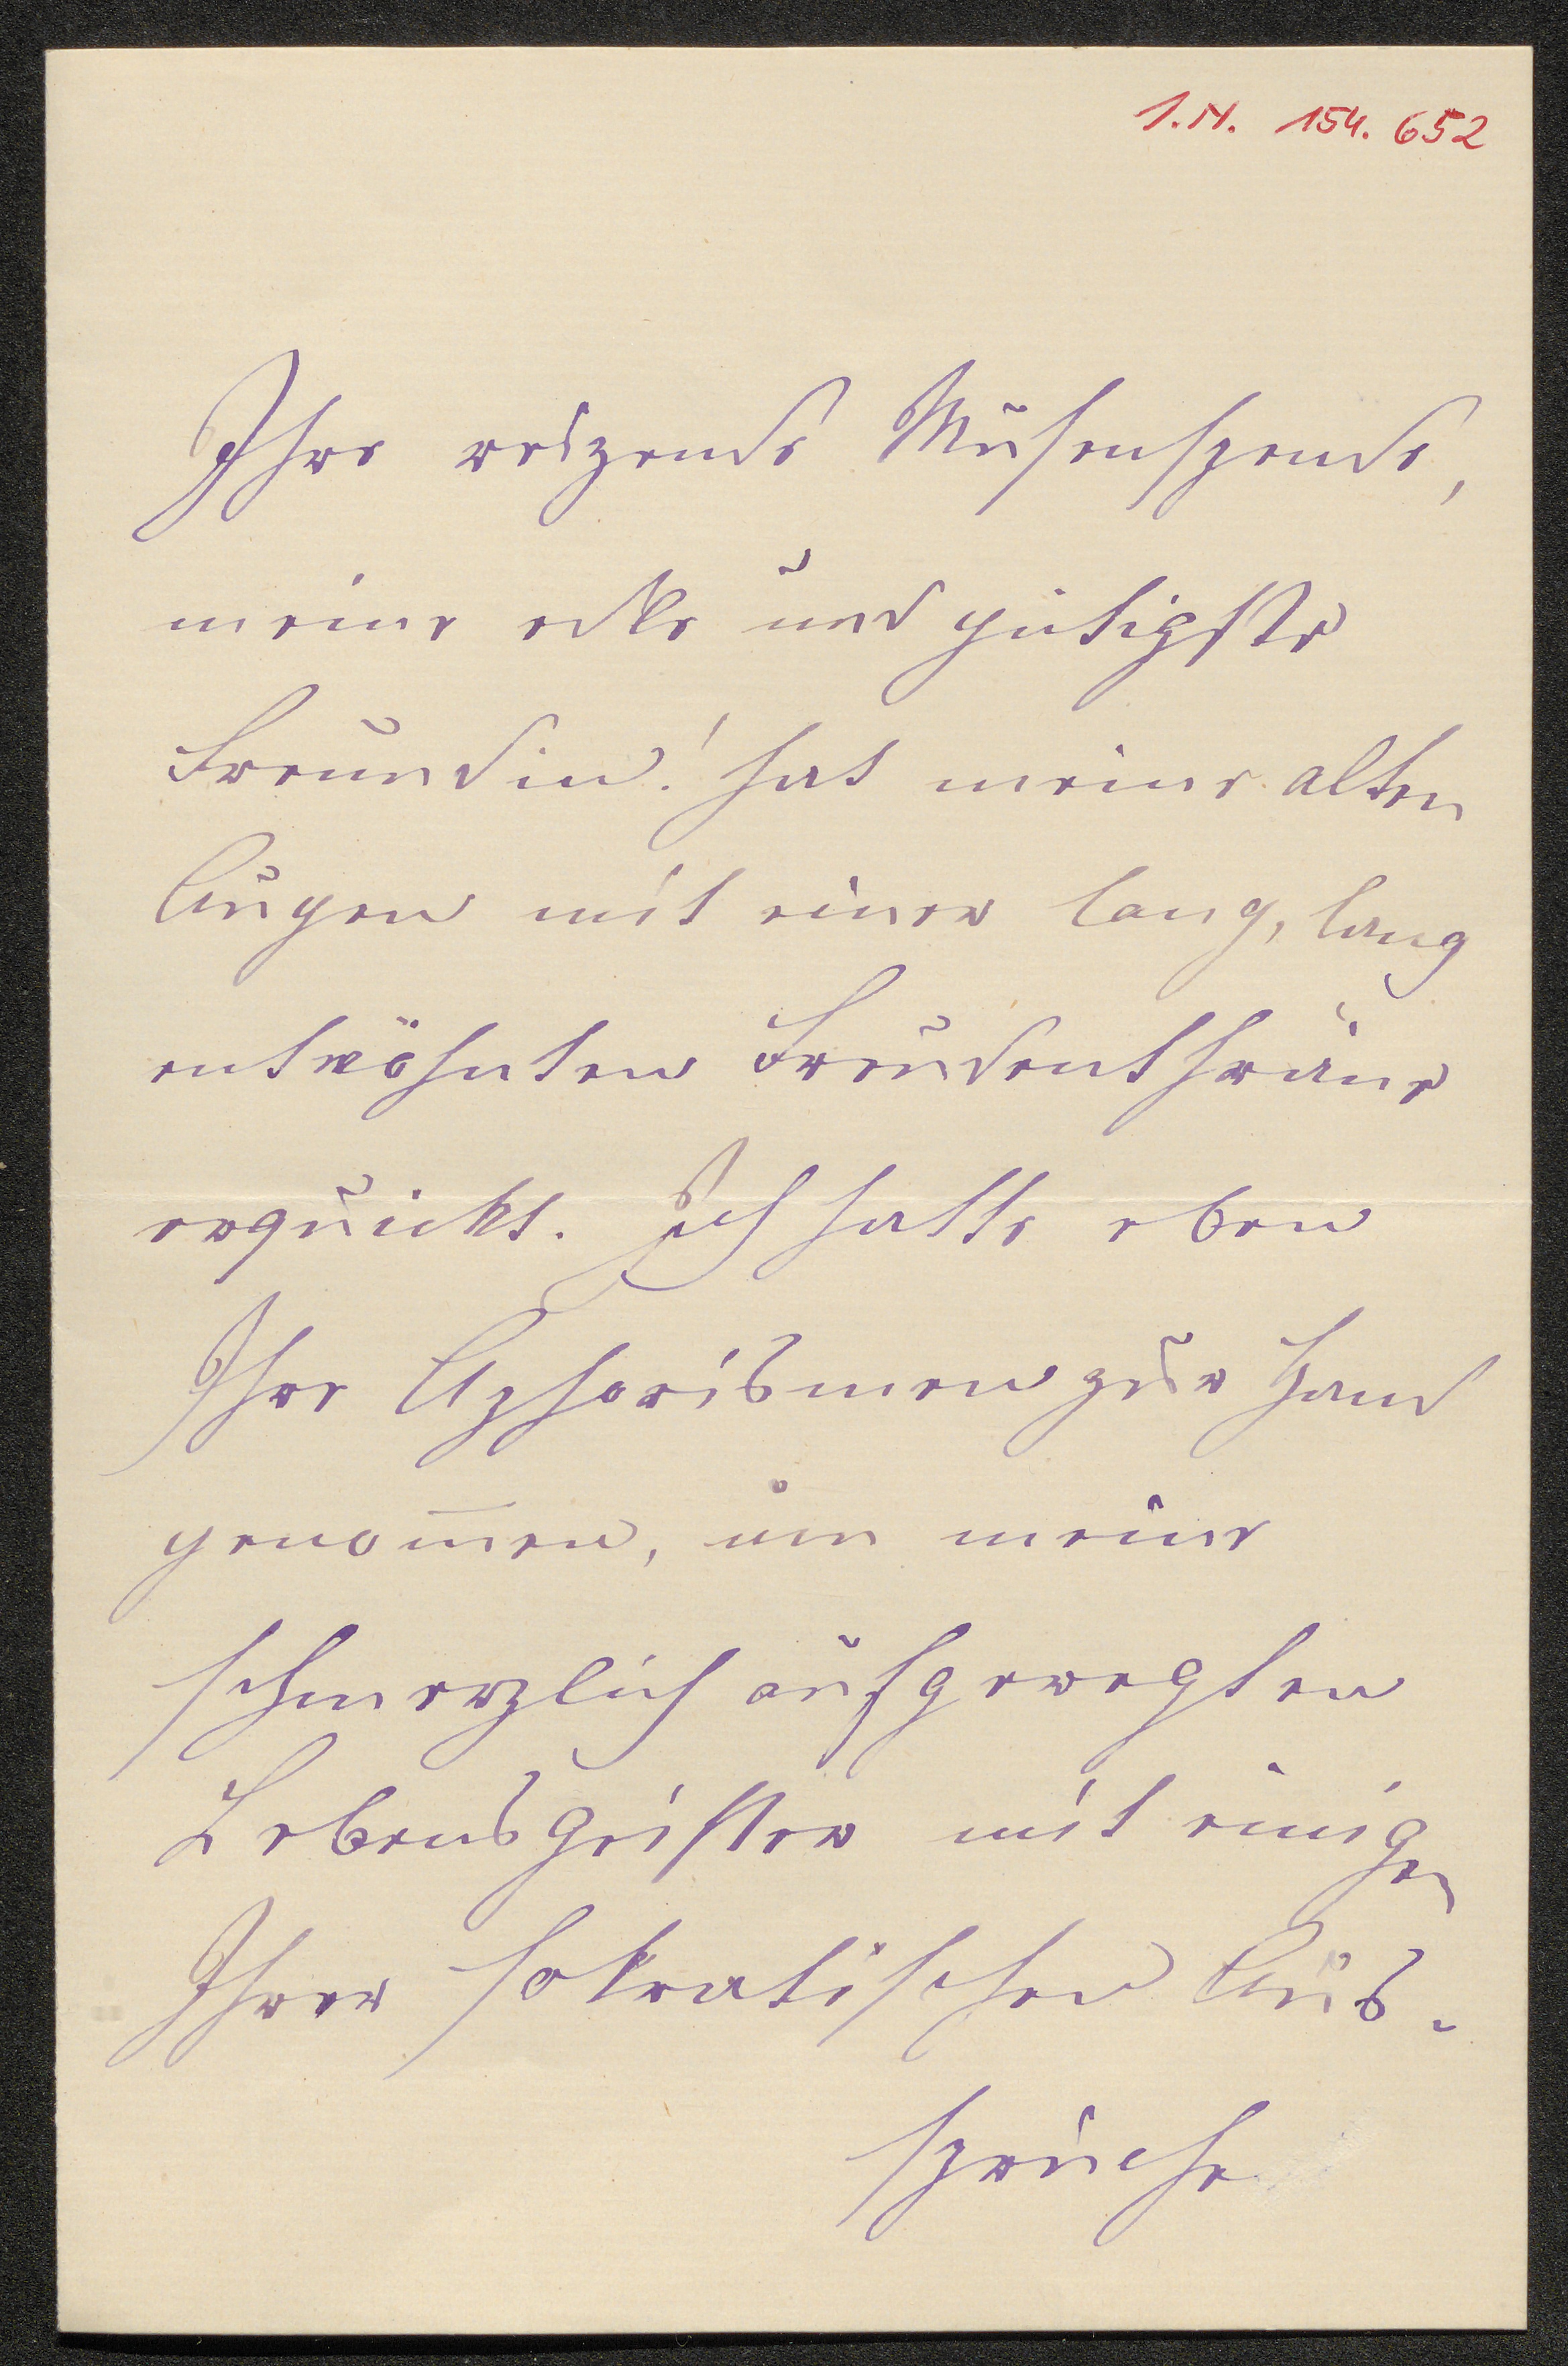 I.N. 154.652
Ihre reizende Musenspende,
meine edle und gütigste
Freundin! hat meine alten
Augen mit einer lang, lang
entwöhnten Freudenthräne
erquickt. Ich hatte eben
Ihre Aphorismen zur Hand
genom̅en, um meine
schmerzlich aufgeregten
Lebensgeister mit einigen
Ihrer sokratischen Aus-
sprüche